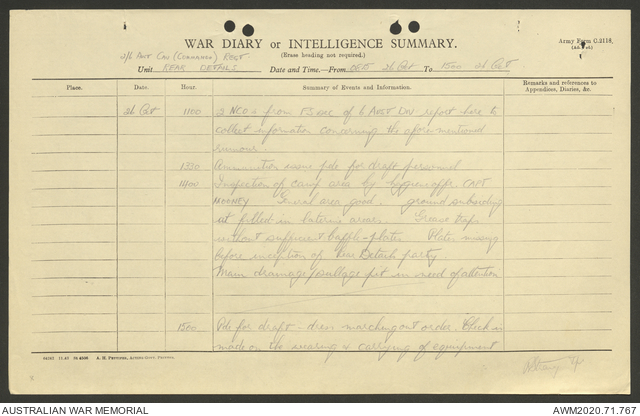 WAR DIARY or INTELLIGENCE SUMMARY.
(Erase heading not required.)
Army Form C.2118.
2/6 Aust Cav (Commando) Regt
Unit REAR DETAILS Date and Time—From 26 Oct To 1500 26 Oct
Place. Date. Hour. Summary of Events and Information. Remarks and references to Appendices, Diaries, &c.
26 Oct 1100 2 NCOs from FS Sec of 6 Aust Div report here to
collect information concerning the aforementioned
1330 Ammunition issue pde for draft personnel
1400 Inspection of camp area by hygiene offr. CAPT
MOONEY General area good - ground subsiding
at filled in latrine areas. Grease traps
without sufficient baffle-plates Plates missing
before inception of Rear Details party.
Main drainage/sullage pit in need of attention
1500 Pde for draft - dress marching out order. Check is
made on the wearing & carrying of equipment
A. H. Pettifer, Acting Govt. Printer.
AUSTRALIAN WAR MEMORIAL
AWM2020.71.767